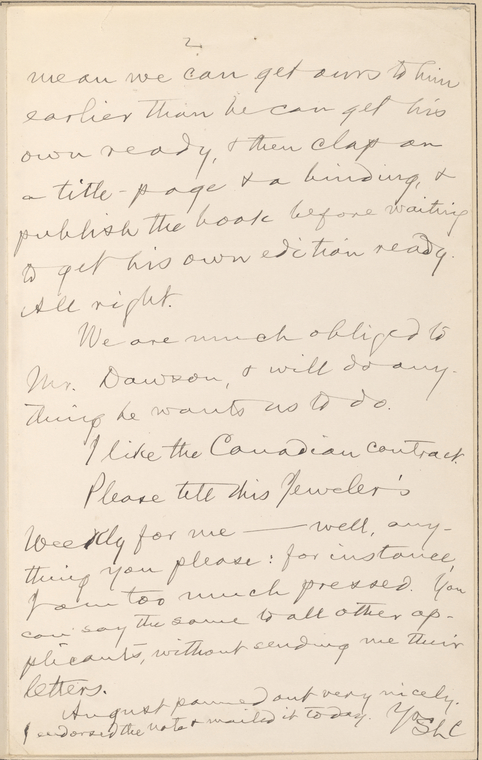 2
mean we can get ours to him
earlier than he can get his
own ready, & then clap on
a title-page & a binding, &
publish the book before waiting
to get his own edition ready.
All right.
We are much obliged to
Mr. Dawson, & will do any-
thing he wants us to do.
I like the Canadian contract.
Please tell this Jeweler's
Weekly for me — well, any-
thing you please: for instance,
I am too much pressed. You
can say the same to all other ap-
plicants, without sending me their
letters.
August panned out very nicely.
I endorsed the note & mailed it to-day. Yrs
SLC